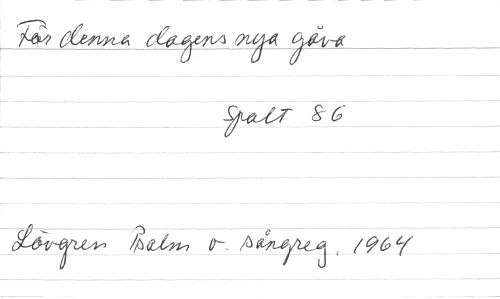 För denna dagens nya gåva
Spalt 86
Lövgren Psalm o. sångreg. 1964